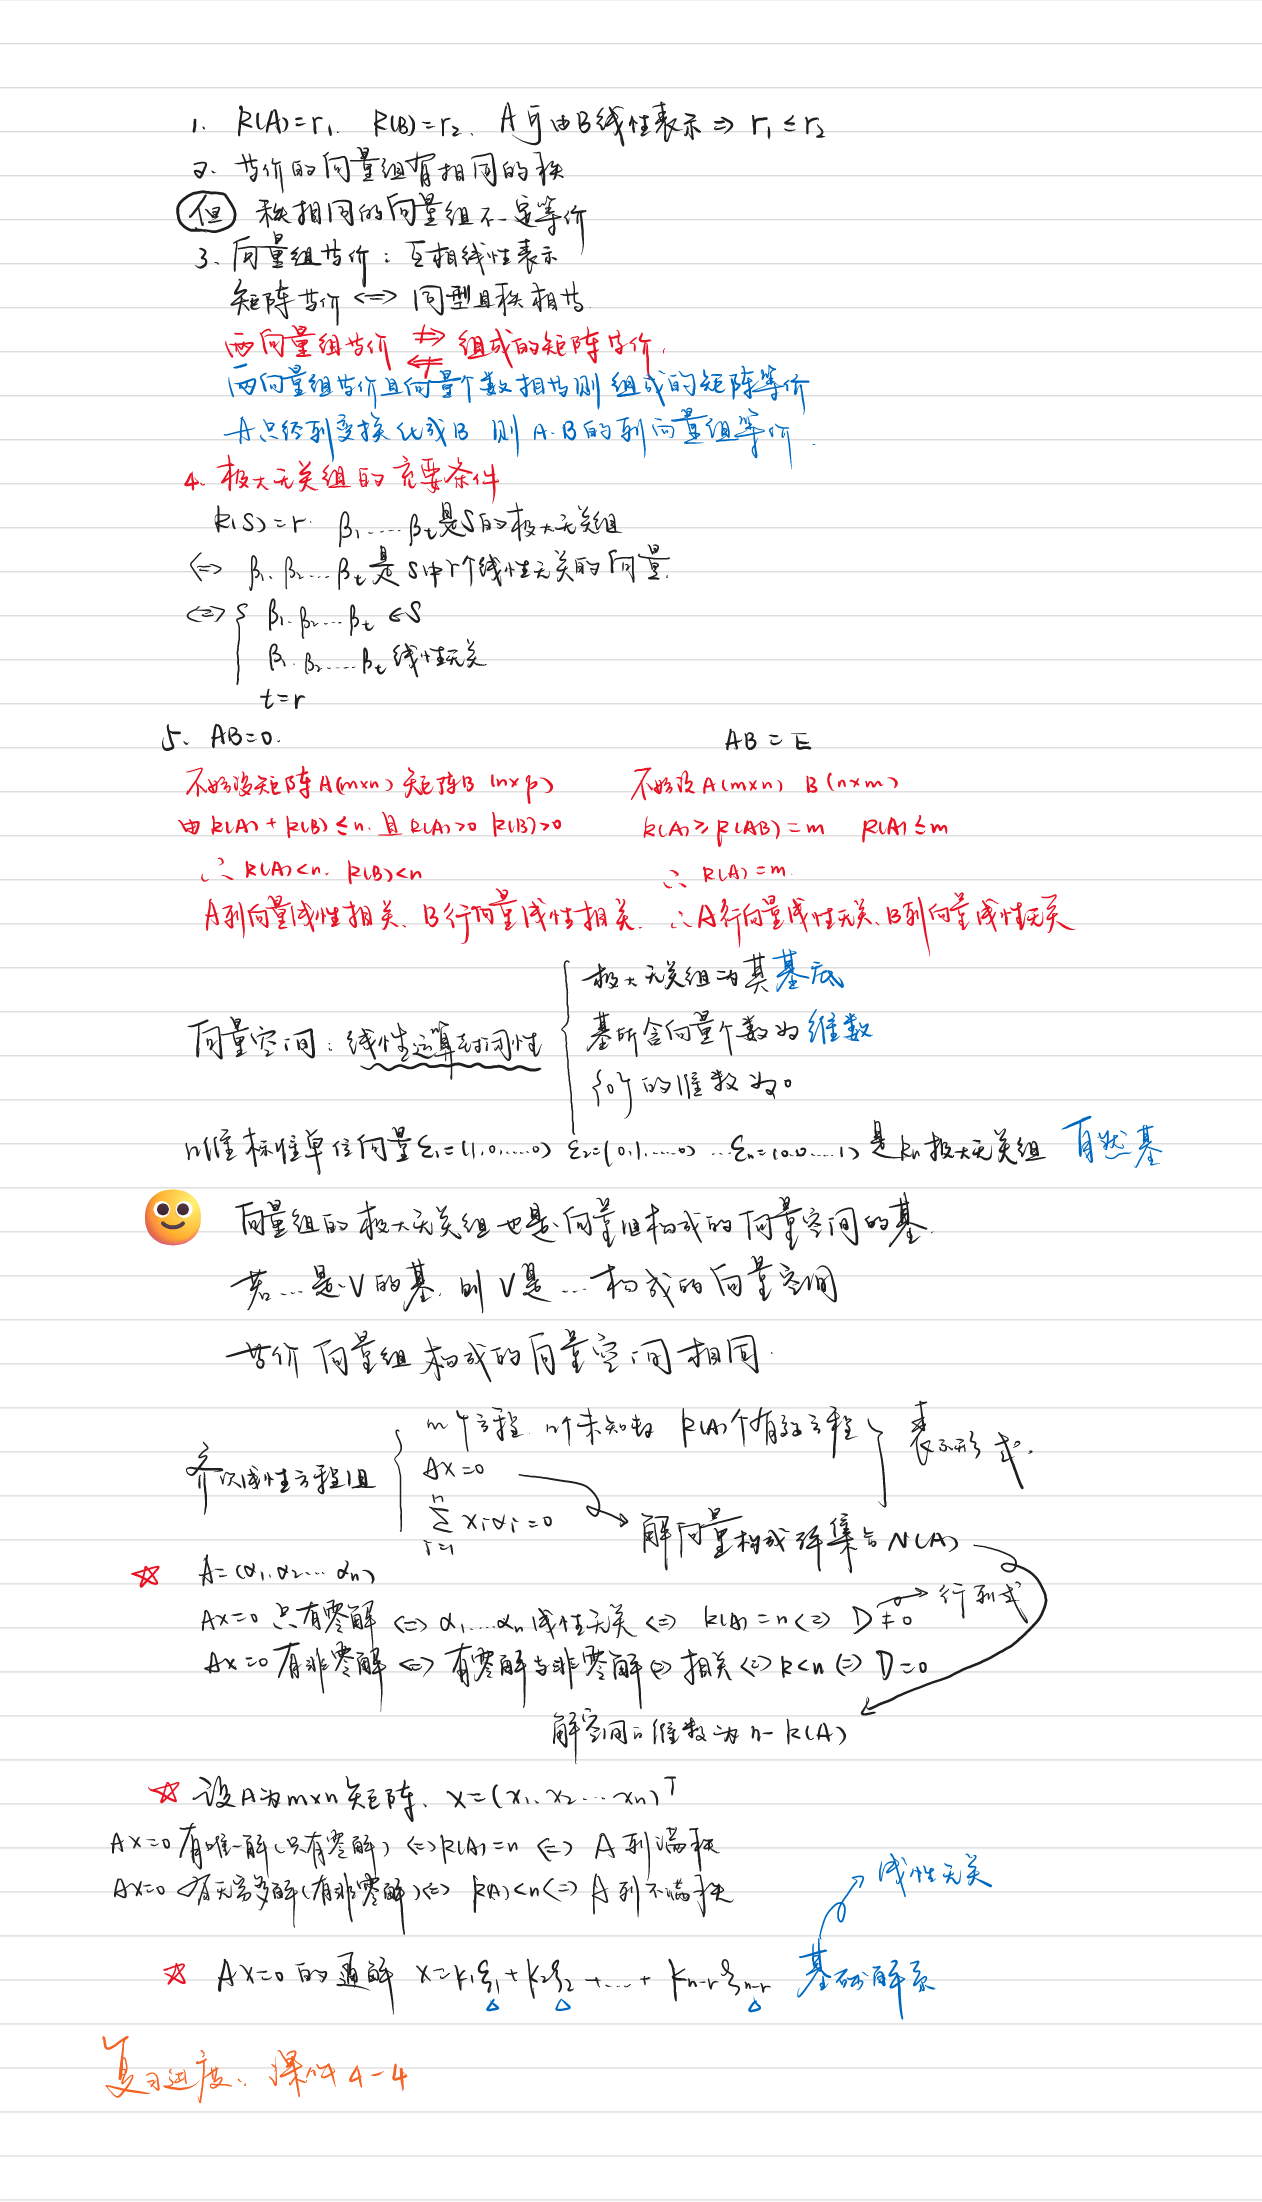 1. R(A)=r₁. R(B)=r₂. A可由B线性表示 ⇒ r₁ ≤ r₂
2. 等价的向量组有相同的秩
但 秩相同的向量组不一定等价
3. 向量组等价：互相线性表示
矩阵等价 <=> 同型且秩相等.
两向量组等价 ⇏ ⇍ 组成的矩阵等价.
两向量组等价且向量个数相等则组成的矩阵等价
A只经列变换化成B 则A.B的列向量组等价.
4. 极大无关组的充要条件
R(S)=r. β₁.....βt是S的极大无关组
<=> β₁.β₂...βt是S中r个线性无关的向量.
<=> { β₁.β₂...βt ∈S
β₁.β₂.....βt线性无关
t=r
5. AB=0. AB=E
不妨设矩阵A(m×n) 矩阵B(n×p) 不妨设A(m×n) B(n×m)
由R(A)+R(B)≤n.且R(A)>0 R(B)>0 R(A)≥R(AB)=m R(A)≤m
∴R(A)<n. R(B)<n ∴ R(A)=m.
A列向量线性相关、B行向量线性相关. ∴A行向量线性无关、B列向量线性无关
极大无关组为其基底
向量空间：线性运算封闭性 { 基所含向量个数为维数
{0}的维数为0
n维标准单位向量ε₁=(1,0,.....0) ε₂=(0,1.....0) ...εn=(0.0.....1)是Rn极大无关组 自然基
向量组的极大无关组也是向量组构成的向量空间的基.
若...是V的基.则V是...构成的向量空间
等价向量组构成的向量空间相同.
m个方程.n个未知数 R(A)个有效方程 } 表示形式.
齐次线性方程组 { AX=0
∑ⁿᵢ₌₁ xᵢαᵢ=0 → 解向量构成解集合N(A)
☆ A=(α₁.α₂...αn)
AX=0只有零解 <=> α₁....αn线性无关 <=> R(A)=n <=> D≠0 → 行列式
AX=0有非零解 <=> 有零解与非零解 <=> 相关 <=> R<n <=> D=0
解空间的维数为n-R(A)
☆ 设A为m×n矩阵、X=(x₁.x₂...xn)ᵀ
AX=0有唯一解(只有零解) <=>R(A)=n <=> A列满秩
AX=0有无穷多解(有非零解)<=> R(A)<n<=> A列不满秩
线性无关
☆ AX=0的通解 X=k₁ξ₁+k₂ξ₂+....+kn-rξn-r 基础解系
复习进度：课件4-4